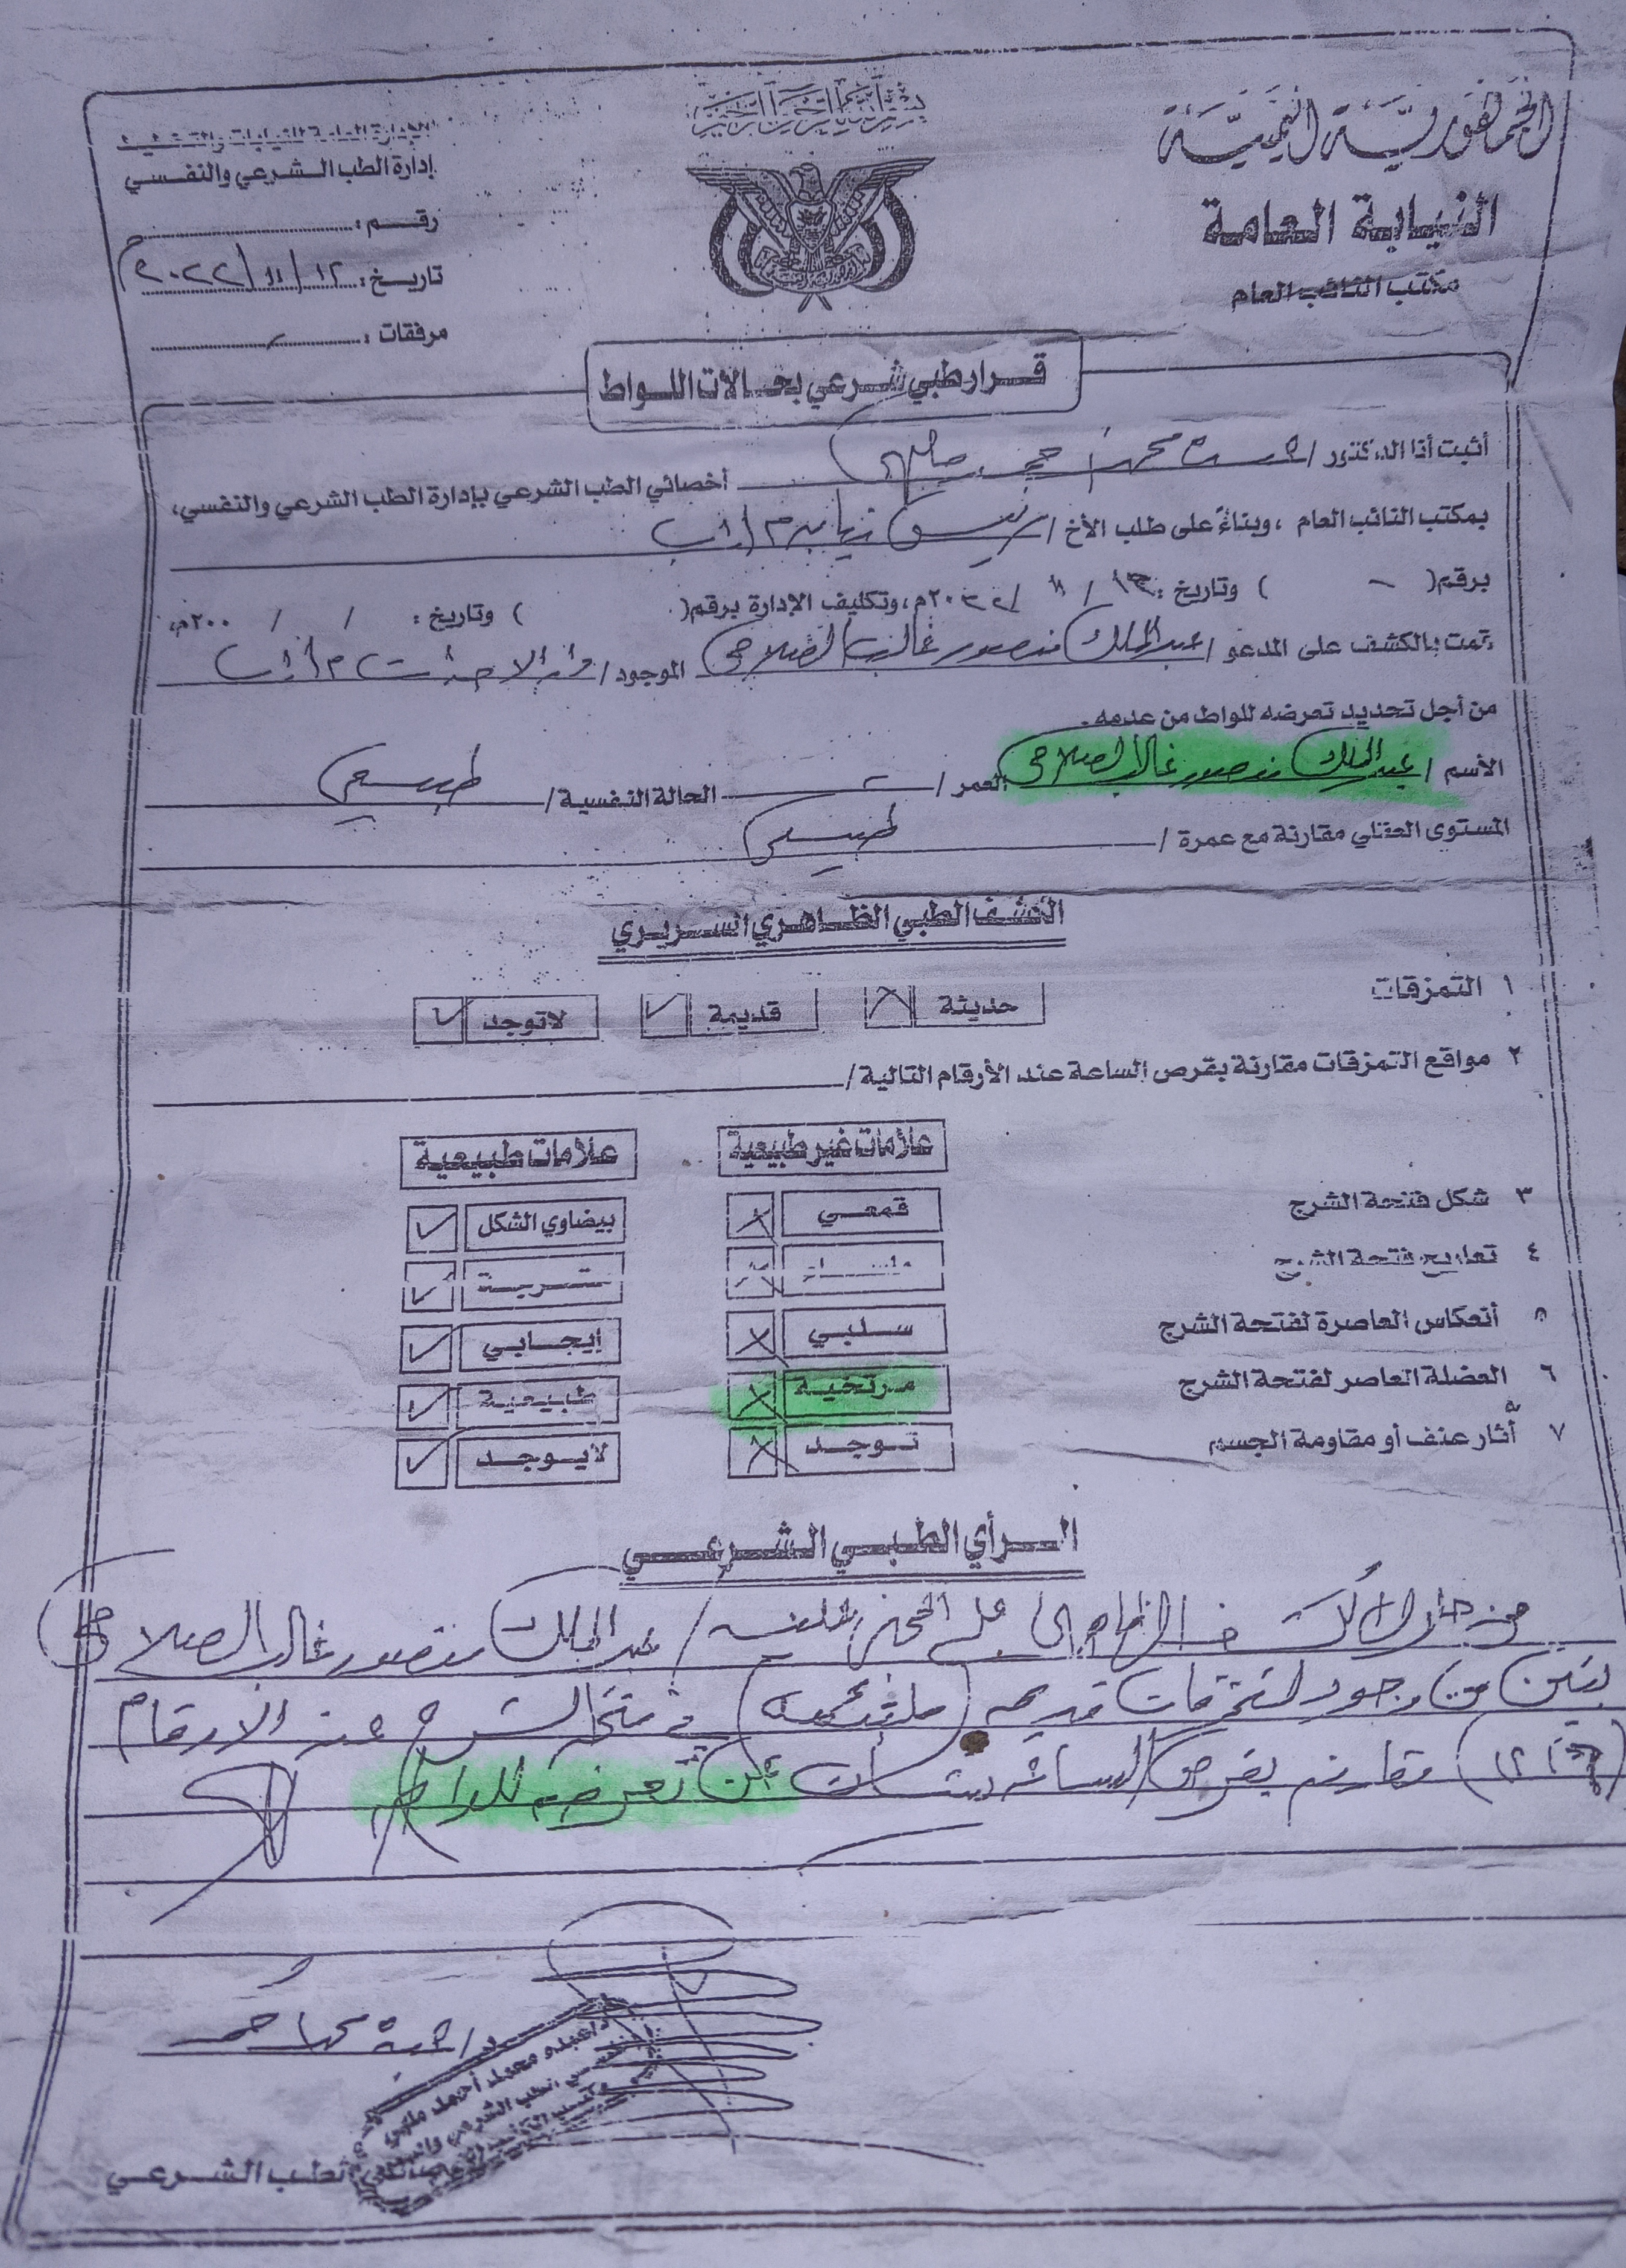 بسم الله الرحمن الرحيم
الجمهورية اليمنية
النيابة العامة
مكتب النائب العام
الإدارة العامة للنيابات
إدارة الطب الشرعي والنفسي
رقم :
تاريخ : ١٢ / ١١ / ٢٠٢٢م
مرفقات :
قرار طبي شرعي بحالات اللواط
أثبت أنا الدكتور / محمد أحمد أخصائي الطب الشرعي بإدارة الطب الشرعي والنفسي،
بمكتب النائب العام ، وبناءً على طلب الأخ / نيابة م/إب
برقم( - ) وتاريخ : / ١١ / ٢٠٢٢م، وتكليف الإدارة برقم( ) وتاريخ : / / ٢٠٠م،
قمت بالكشف على المدعو / عبدالملك منصور غالب الصلاحي الموجود / الاحداث م/إب
من أجل تحديد تعرضه للواط من عدمه.
الأسم / عبدالملك منصور غالب الصلاحي العمر / الحالة النفسية / طبيعي
المستوى العقلي مقارنة مع عمرة / طبيعي
الكشف الطبي الظاهري السريري
١ التمزقات حديثة قديمة لاتوجد
٢ مواقع التمزقات مقارنة بقرص الساعة عند الأرقام التالية /
علامات غير طبيعية علامات طبيعية
٣ شكل فتحة الشرج قمعي بيضاوي الشكل
٤ تعاريج فتحة الشرج
٥ أنعكاس العاصرة لفتحة الشرج سلبي إيجابي
٦ العضلة العاصر لفتحة الشرج مرتخية طبيعية
٧ أثار عنف أو مقاومة الجسم توجد لايوجد
الرأي الطبي الشرعي
من خلال الظاهري على / عبدالملك منصور غالب الصلاحي
تبين من وجود تمزقات قديمه (ملتئمه) في فتحة الشرج عند الارقام
مقارنه بقرص الساعه عن تعرضه للواط
د/ عبده محمد احمد
د/عبده محمد أحمد ملهي
الطب الشرعي